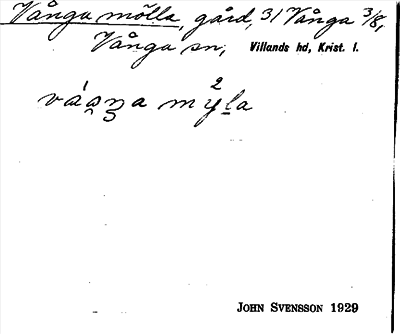 Vånga mölla, gård, 31 Vånga 3/8,
Vånga sn, Villands hd, Krist. l.
JOHN SVENSSON 1929